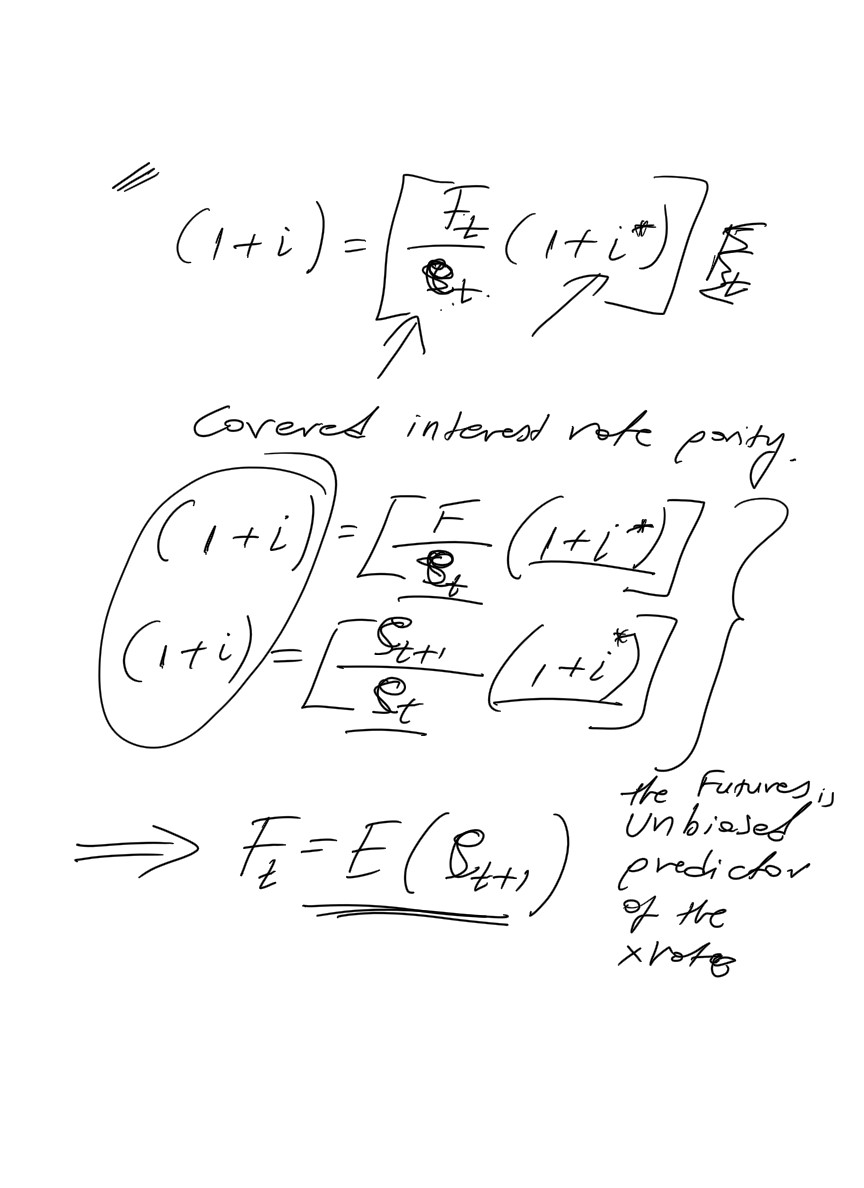 (1+i) = [F_t/S_t (1+i*)]
Covered interest rate parity.
(1+i) = [F/S_t (1+i*)]
(1+i) = [S_t+1/S_t (1+i*)]
⟹ F_t = E(S_t+1)
the Futures is
Unbiased
predictor
of the
xrate